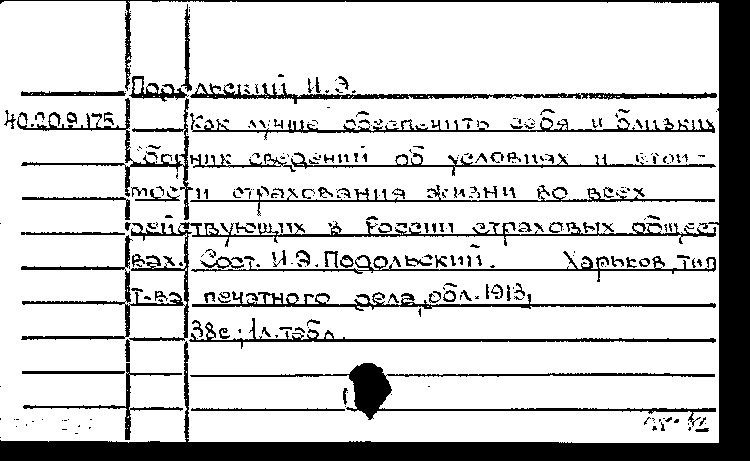 Подольский, И.Э.
40.20.9.175. Как лучше обеспечить себя и близких
Сборник сведений об условиях и стои-
мости страхования жизни во всех
действующих в России страховых общест
вах. Сост. И.Э.Подольский. Харьков, тип
т-ва печатного дела, обл. 1913,
38с.; 1л. табл.